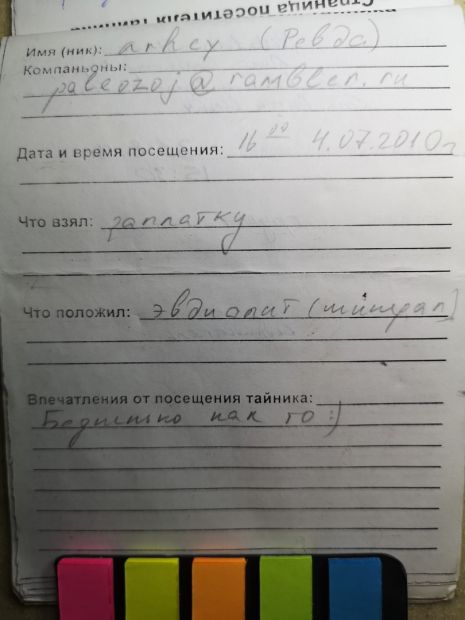 Страница посетителя тайника
Имя (ник): arhey (Ревда)
Компаньоны:
paleozoj@rambler.ru
Дата и время посещения: 16 00 4.07.2010г
Что взял: заплатку
Что положил: эвдиалит (минерал)
Впечатления от посещения тайника:
Бедненько как то :)